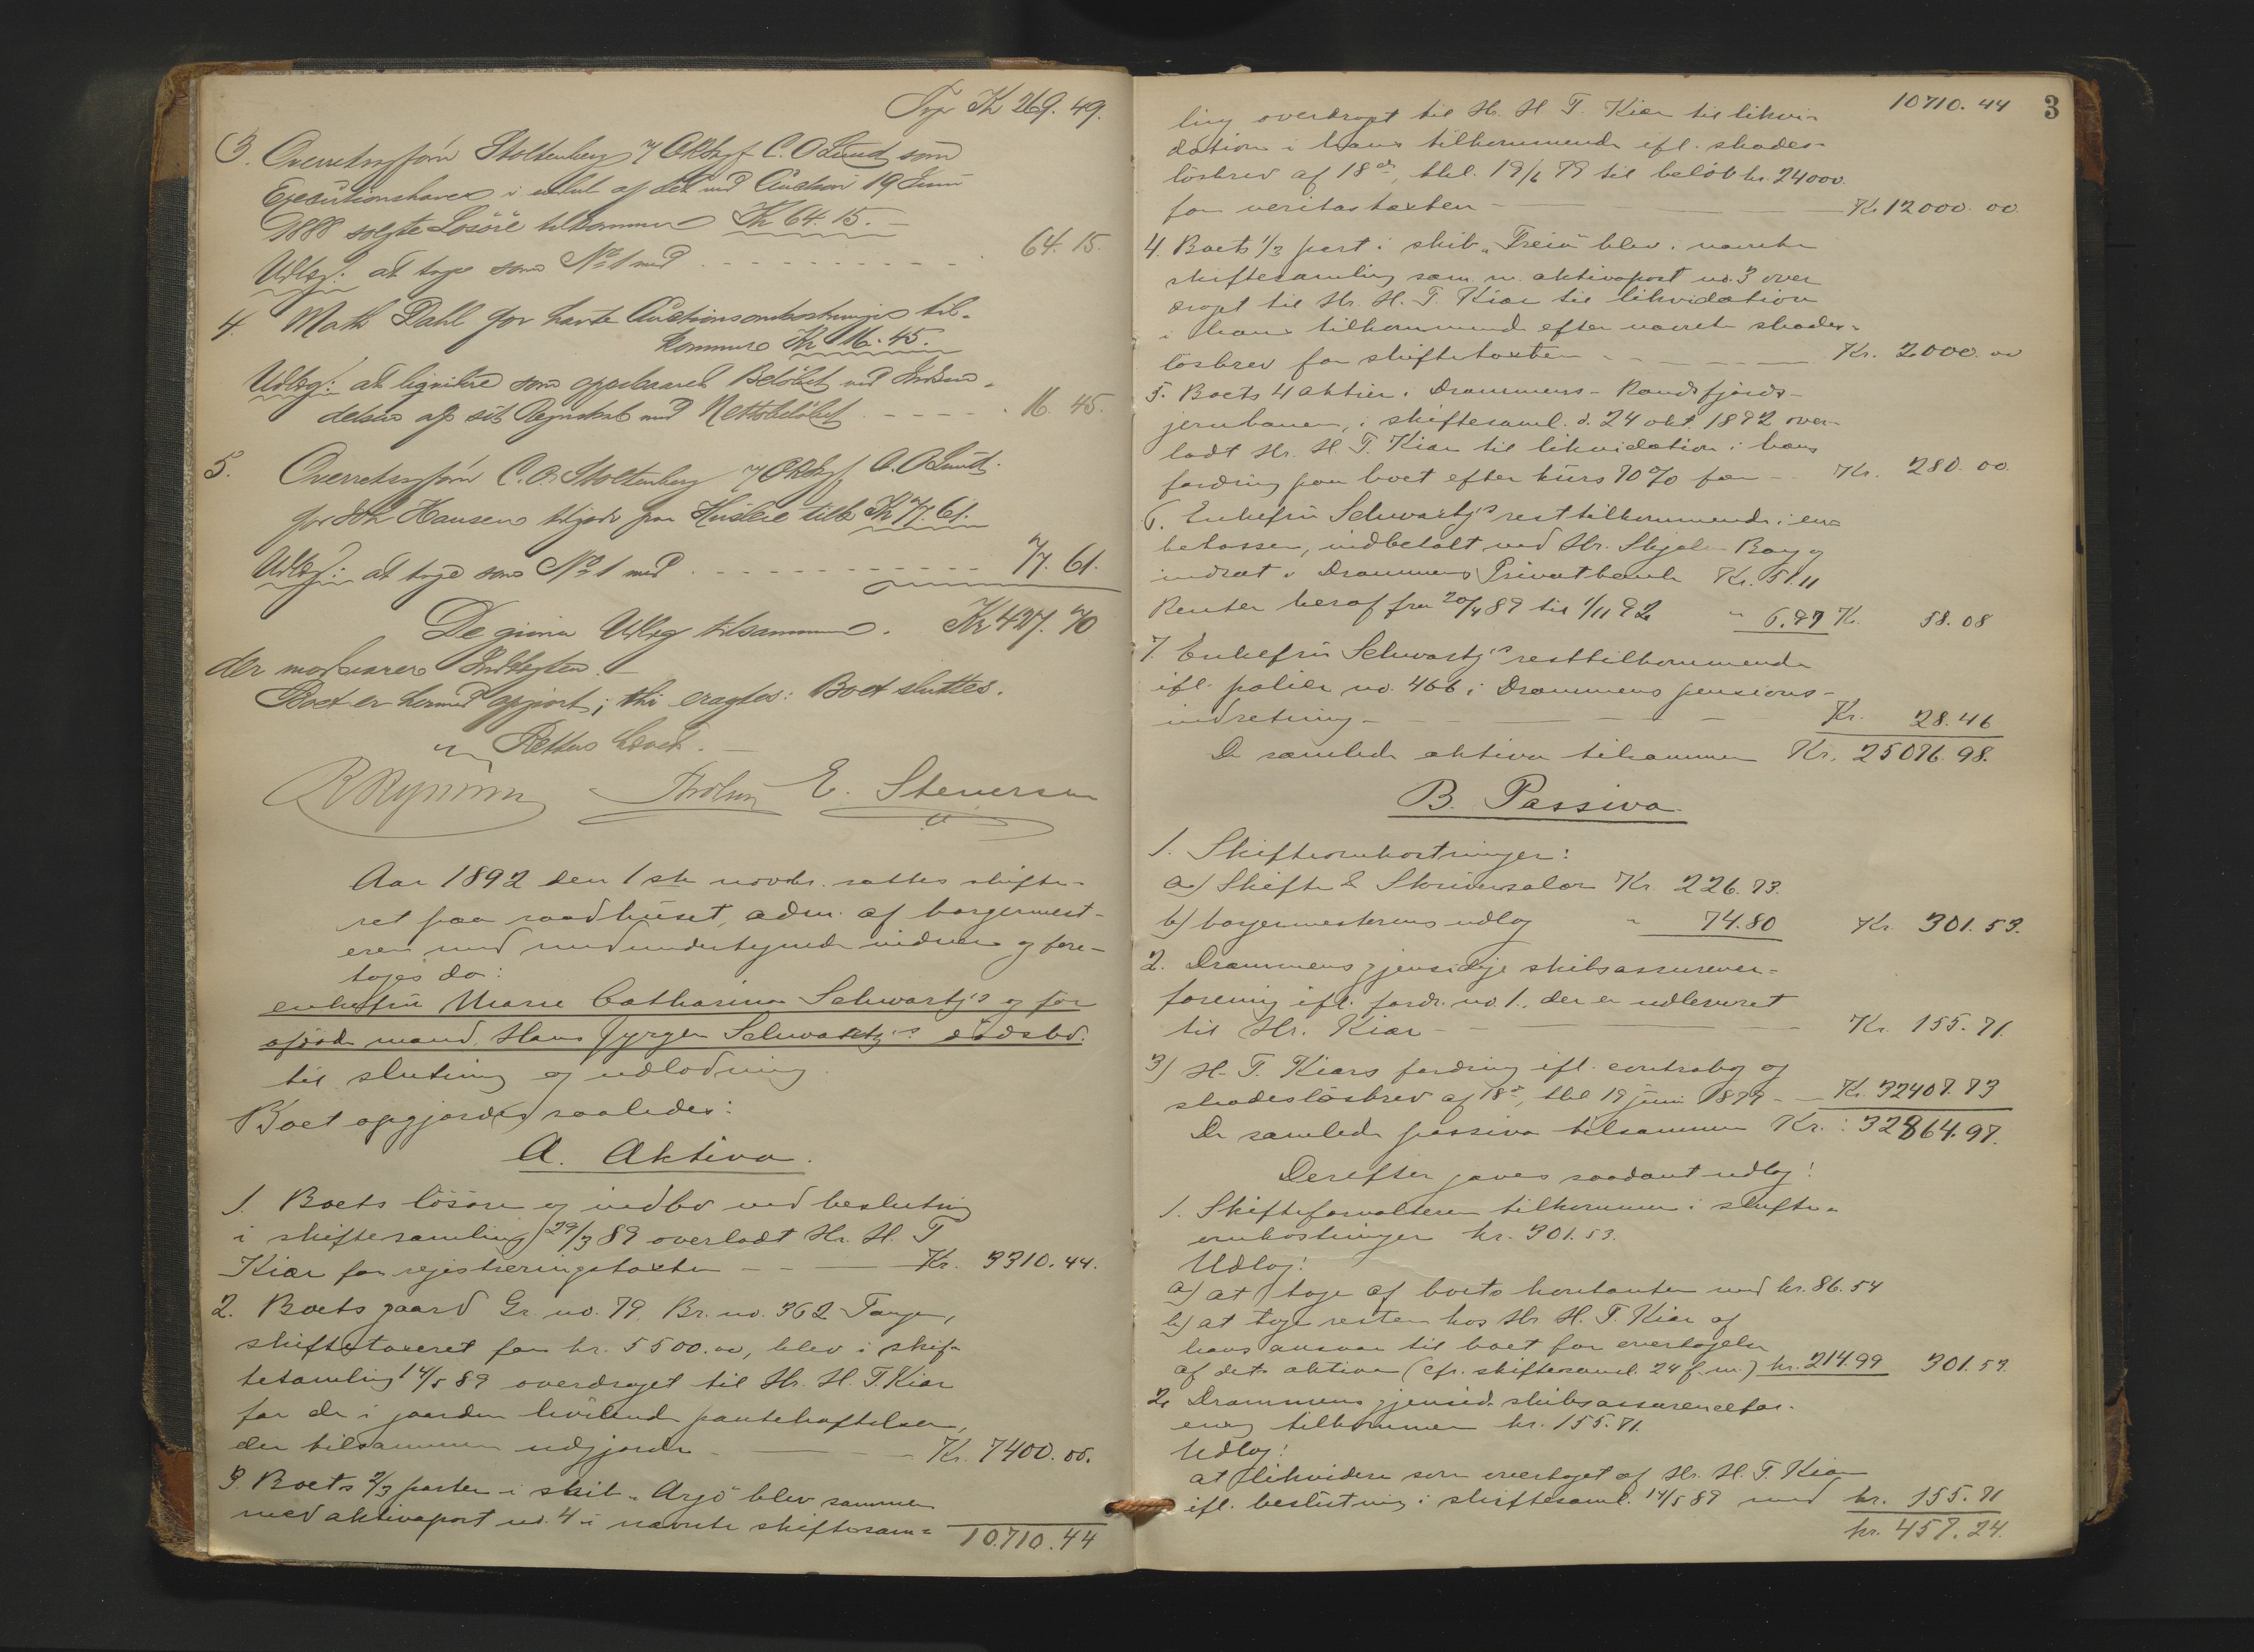 Trp Kr 269. 49.
3. Overretssagfører Stoltenberg / O.R.Sagf. C. O Lund som
Executionshaver i endel af det ved Auction 19 Juni
1888 solgte Løsøre tilkommer Kr 64. 15. –
Udlæg: at tage som No 1 med 64. 15.
4. Math Dahl for havte Auctionsomkostninger til-
kommer Kr 16. 45.
Udlæg: at ligvidere som oppebaaret Beløbet ved Indsen-
delsen af sit Regnskab med Nettobeløbet 16. 45.
5. Overretssagfører C. O. Stoltenberg / O.R.Sagf. C. O Lund
for Hansen tilgode paa Husleie tilk Kr 77. 61.
Udlæg: at tage som No 1 med 77. 61.
De givne Udlæg tilsammen. Kr 427. 70
der modsvarer Indtægten. –
Boet er hermed opgjort; thi eragtes: Boet sluttes.
Retten hævet. –
E. Stenersen
Aar 1892 den 1ste novbr. sattes skifte-
ret paa raadhuset, adm. af borgermest-
eren med medundertegnede vidner og fore-
toges da:
enkefru Marie Catharina Schwartz's og før
afdøde mand, Hans Jyrgen Schwartz's dødsbo.
til slutning og udlodning.
Boet opgjordes saaledes:
A. Aktiva.
1. Boets løsøre og indbo ved beslutning
i skiftesamling 29/3 89 overladt Hr. H. T
Kiær for registreringstaxten – – – Kr. 3310. 44.
2. Boets gaard Gr. no. 79, Br. no. 362 Tangen,
skiftetaxeret for kr. 5500. 00, blev i skif-
tesamling 14/5 89 overdraget til Hr. H. T. Kiær
for de i gaarden hvilende panteheftelser,
der tilsammen udgjorde – – – Kr. 7400. 00.
3. Boets 2/3 parter i skib „Argo" blev sammen
med aktivapost no. 4 i nævnte skiftesam- 10.710. 44
10710. 44 3
ling overdraget til Hr. H. T. Kiær til likvi-
dation i hans tilkommende ifl. skades-
løsbrev af 18de, thl. 19/6 79 til beløb kr. 24000.
for veritastaxten – – – Kr. 12000. 00.
4. Boets 1/3 part i skib „Freia" blev i nævnte
skiftesamling sam. m. aktivapost no. 3 over
draget til Hr. H. T. Kiær til likvidation
i hans tilkommende efter nævnte skades-
løsbrev for skiftetaxten – – – Kr. 2000. 00
5. Boets 4 aktier i Drammens-Randsfjords-
jernbanen, i skiftesaml. d. 24 okt. 1892 over-
ladt Hr. H. T. Kiær til likvidation i hans
fordring paa boet efter kurs 70 % for – – Kr. 280. 00.
6. Enkefru Schwartz's resttilkommende i en-
kekassen, indbetalt ved Hr. Skjalm Bang og
indsat i Drammens Privatbank Kr. 51. 11
Renter heraf fra 20/4 89 til 1/11 92 „ 6. 97 Kr. 58. 08
7. Enkefru Schwartz's resttilkommende
ifl. police no. 466 i Drammens pensions-
indretning – – – Kr. 28. 46
De samlede aktiva tilsammen Kr. 25076. 98.
B. Passiva.
1. Skifteomkostninger:
a) Skifte & Skriversalær Kr. 226. 73.
b) borgermesterens udlæg „ 74. 80 Kr. 301. 53.
2. Drammens gjensidige skibsassurance-
forening ifl. fordr. no. 1, der er udleveret
til Hr. Kiær – – – Kr. 155. 71.
3) H. T. Kiærs fordring ifl. contrabog og
skadesløsbrev af 18de, thl 19 juni 1879 – – Kr. 32407. 73
De samlede passiva tilsammen Kr. : 32864. 97.
Derefter gaves saadant udlæg:
1. Skifteforvalteren tilkommer i skifte-
omkostninger kr. 301. 53.
Udlæg:
a) at tage af boets kontanter med kr. 86. 54
b) at tage resten hos Hr. H. T. Kiær af
hans ansvar til boet for overtagelsen
af dets aktiva (cfr. skiftesaml. 24 f. m.) kr. 214. 99 301. 53.
2. Drammens gjensid. skibsassurancefor-
ening tilkommer kr. 155. 71.
Udlæg:
at likvidere som overtaget af Hr. H. T. Kiær
ifl. beslutning i skiftesaml. 14/5 89 med kr. 155. 71
kr. 457. 24.